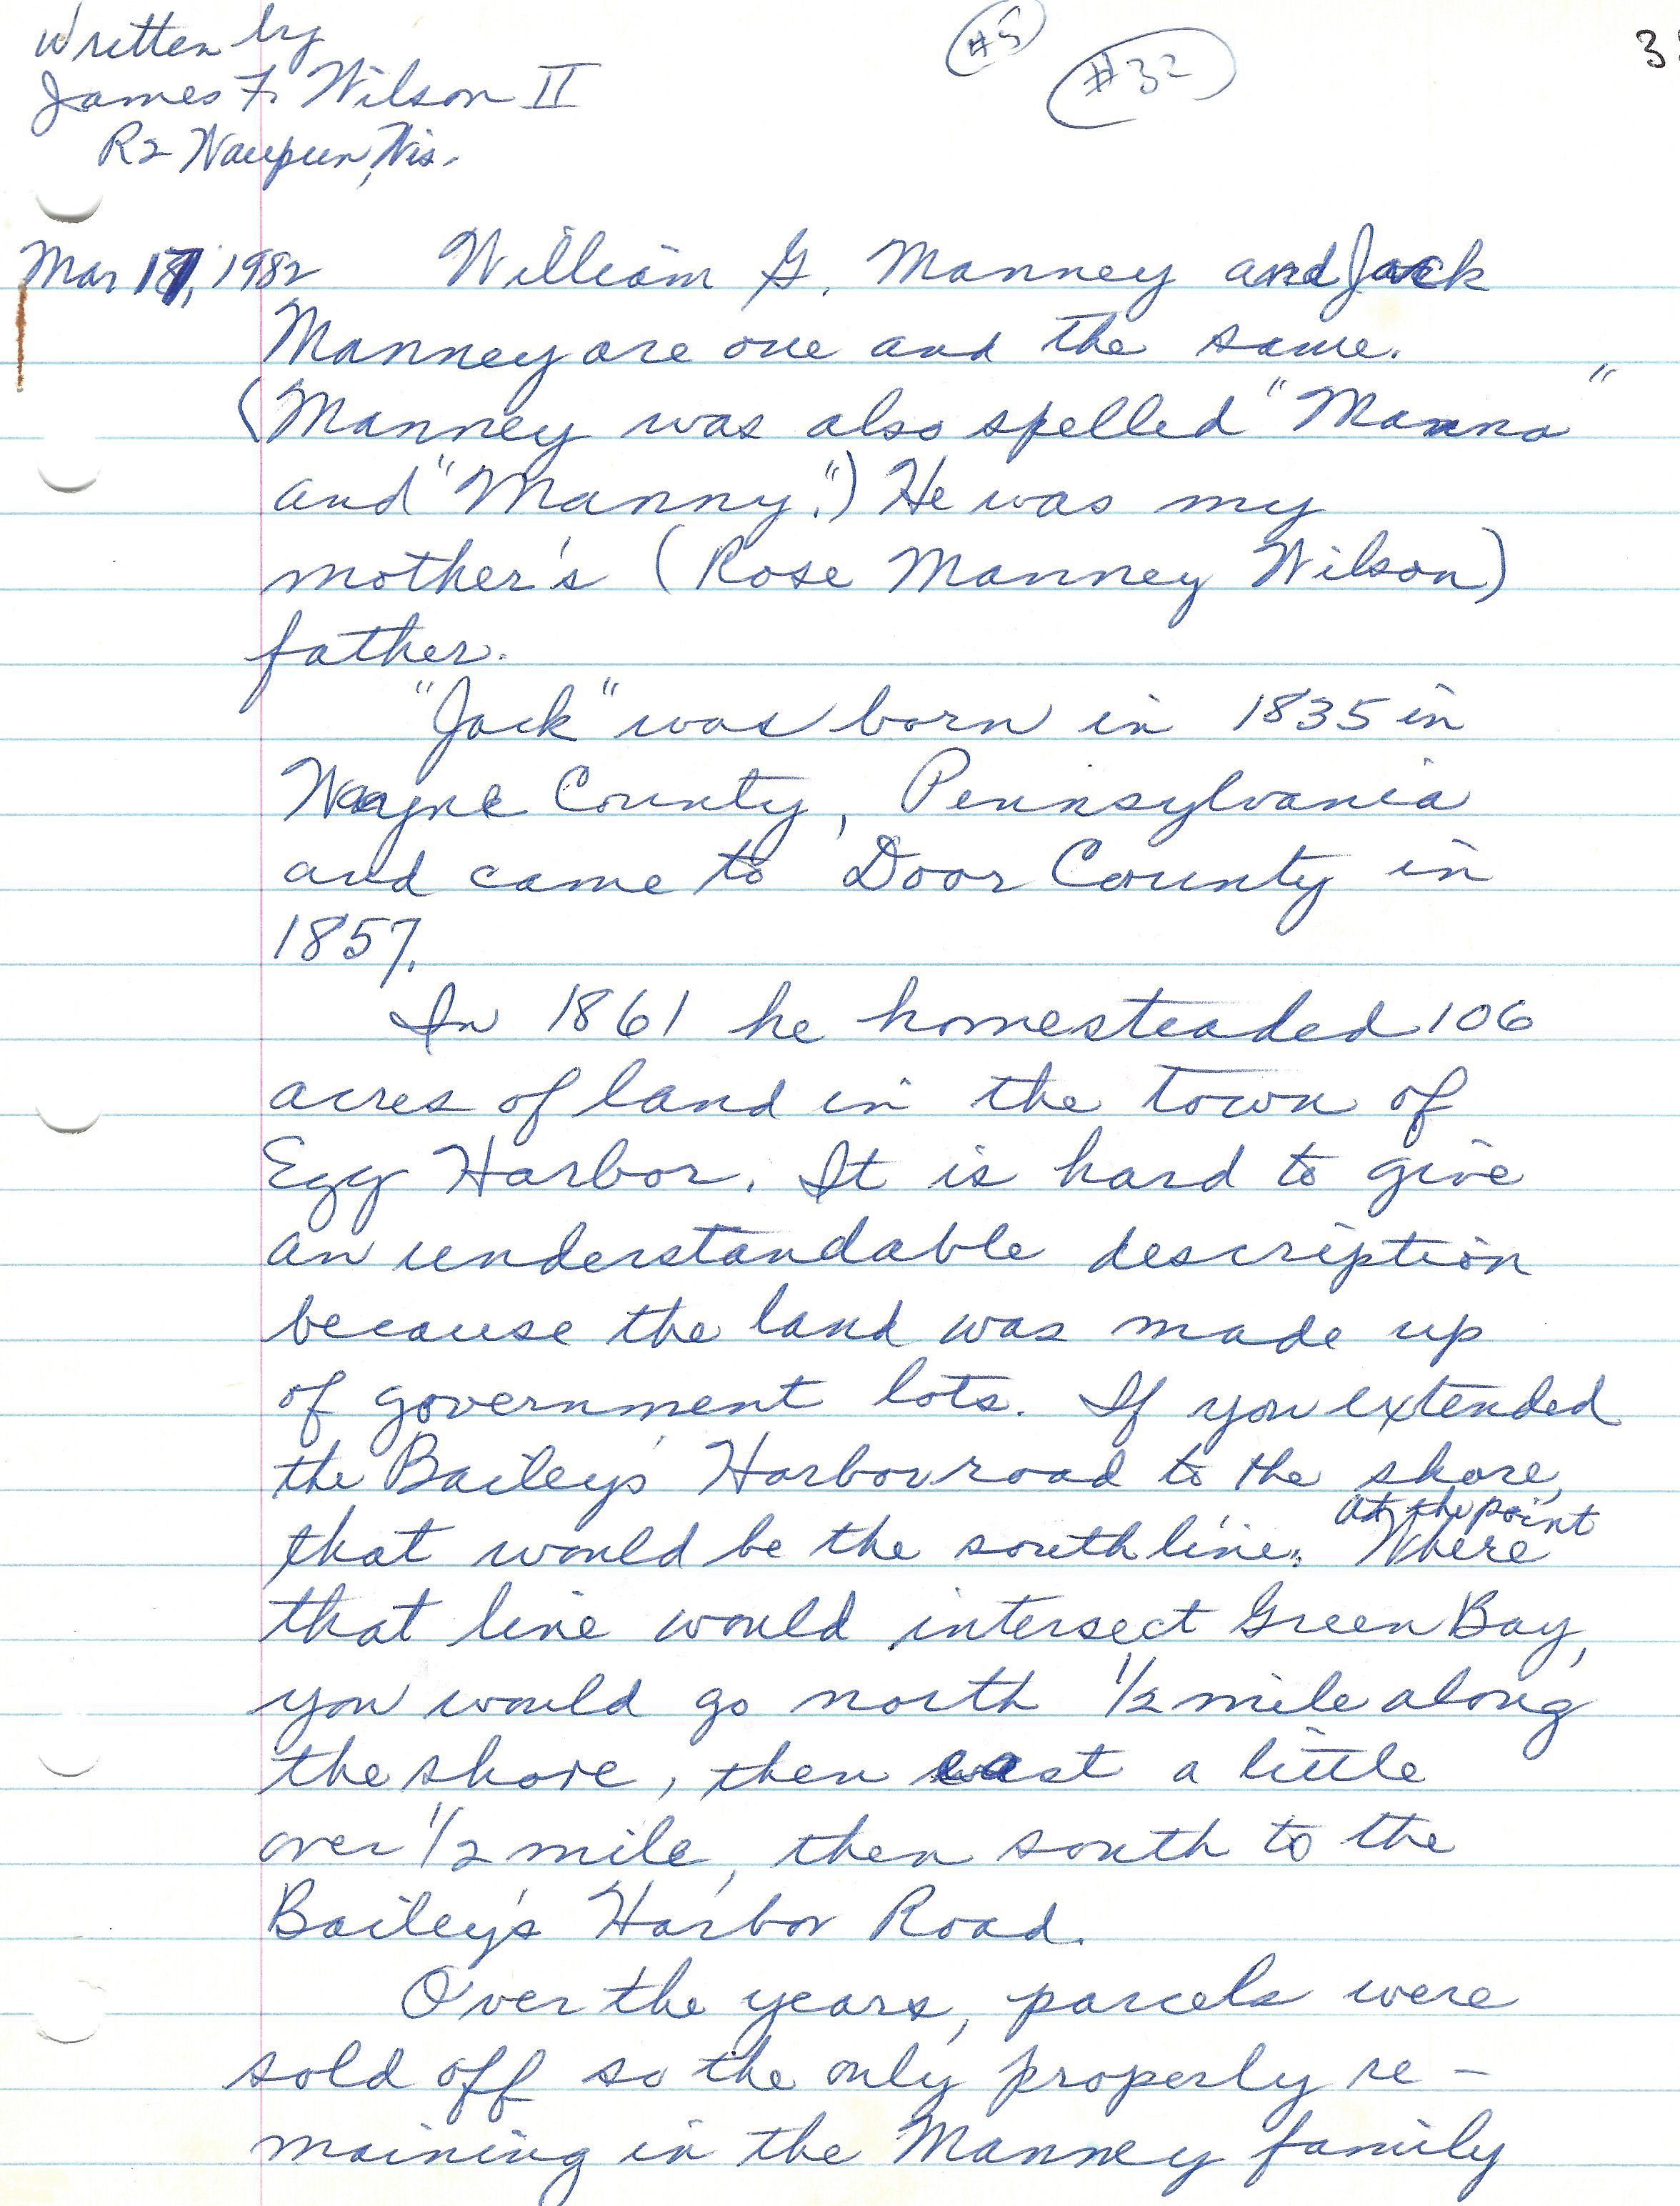 Written by
James F. Wilson II
R2 Waupun, Wis.
#5
#32
Mar 17, 1982 William G. Manney and Jack
Manney are one and the same.
(Manney was also spelled "Manna"
and "Manny".) He was my
mother's (Rose Manney Wilson)
father.
"Jack" was born in 1835 in
Wayne County, Pennsylvania
and came to Door County in
1857.
In 1861 he homesteaded 106
acres of land in the town of
Egg Harbor. It is hard to give
an understandable description
because the land was made up
of government lots. If you extended
the Baileys Harbor road to the shore,
that would be the south line. at the point Where
that line would intersect Green Bay,
you would go north 1/2 mile along
the shore, then east a little
over 1/2 mile, then south to the
Bailey's Harbor Road.
Over the years, parcels were
sold off so the only property re-
maining in the Manney family